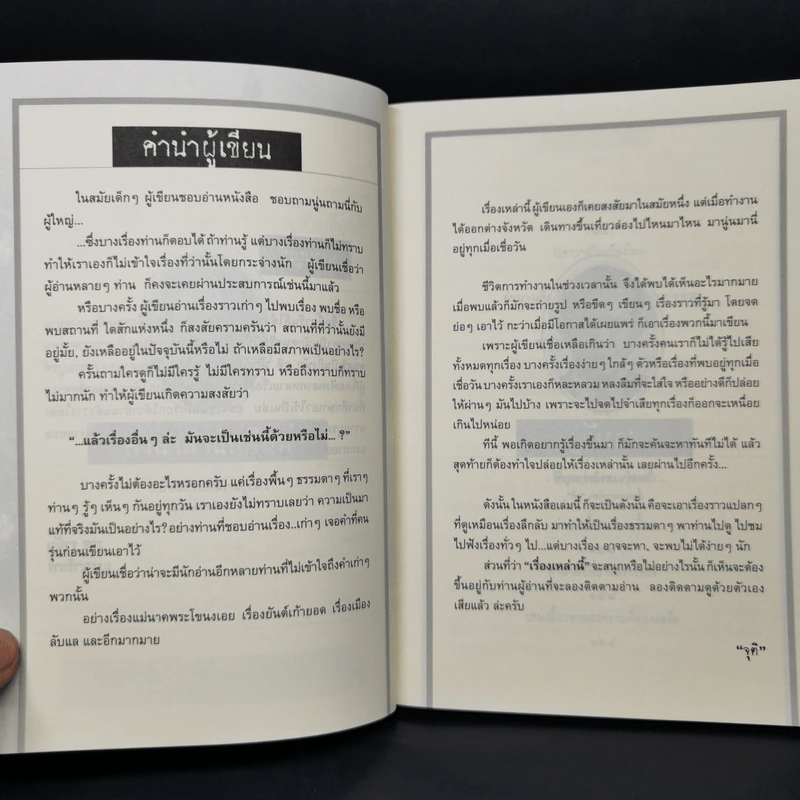 คำนำผู้เขียน
ในสมัยเด็กๆ ผู้เขียนชอบอ่านหนังสือ ชอบถามนู่นถามนี่กับ
ผู้ใหญ่...
...ซึ่งบางเรื่องท่านก็ตอบได้ ถ้าท่านรู้ แต่บางเรื่องท่านก็ไม่ทราบ
ทำให้เราเองก็ไม่เข้าใจเรื่องที่ว่านั้นโดยกระจ่างนัก ผู้เขียนเชื่อว่า
ผู้อ่านหลายๆ ท่าน ก็คงจะเคยผ่านประสบการณ์เช่นนี้มาแล้ว
หรือบางครั้ง ผู้เขียนอ่านเรื่องราวเก่าๆ ไปพบเรื่อง พบชื่อ หรือ
พบสถานที่ ใดสักแห่งหนึ่ง ก็สงสัยครามครันว่า สถานที่ที่ว่านั้นยังมี
อยู่มั้ย, ยังเหลืออยู่ในปัจจุบันนี้หรือไม่ ถ้าเหลือมีสภาพเป็นอย่างไร?
ครั้นถามใครดูก็ไม่มีใครรู้ ไม่มีใครทราบ หรือถึงทราบก็ทราบ
ไม่มากนัก ทำให้ผู้เขียนเกิดความสงสัยว่า
“...แล้วเรื่องอื่นๆ ล่ะ มันจะเป็นเช่นนี้ด้วยหรือไม่...?”
บางครั้งไม่ต้องอะไรหรอกครับ แค่เรื่องพื้นๆ ธรรมดาๆ ที่เราๆ
ท่านๆ รู้ๆ เห็นๆ กันอยู่ทุกวัน เราเองยังไม่ทราบเลยว่า ความเป็นมา
แท้ที่จริงมันเป็นอย่างไร? อย่างท่านที่ชอบอ่านเรื่อง..เก่าๆ เจอคำที่คน
รุ่นก่อนเขียนเอาไว้
ผู้เขียนเชื่อว่าน่าจะมีนักอ่านอีกหลายท่านที่ไม่เข้าใจถึงคำเก่าๆ
พวกนั้น
อย่างเรื่องแม่นาคพระโขนงเอย เรื่องยันต์เก้ายอด เรื่องเมือง
ลับแล และอีกมากมาย
เรื่องเหล่านี้ ผู้เขียนเองก็เคยสงสัยมาในสมัยหนึ่ง แต่เมื่อทำงาน
ได้ออกต่างจังหวัด เดินทางขึ้นเที่ยวล่องไปไหนมาไหน มานู่นมานี่
อยู่ทุกเมื่อเชื่อวัน
ชีวิตการทำงานในช่วงเวลานั้น จึงได้พบได้เห็นอะไรมากมาย
เมื่อพบแล้วก็มักจะถ่ายรูป หรือขีดๆ เขียนๆ เรื่องราวที่รู้มา โดยจด
ย่อๆ เอาไว้ กะว่าเมื่อมีโอกาสได้เผยแพร่ ก็เอาเรื่องพวกนี้มาเขียน
เพราะผู้เขียนเชื่อเหลือเกินว่า บางครั้งคนเราก็ไม่ได้รู้ไปเสีย
ทั้งหมดทุกเรื่อง บางครั้งเรื่องง่ายๆ ใกล้ๆ ตัวหรือเรื่องที่พบอยู่ทุกเมื่อ
เชื่อวัน บางครั้งเราเองก็หละหลวม หลงลืมที่จะใส่ใจ หรืออย่างดีก็ปล่อย
ให้ผ่านๆ มันไปบ้าง เพราะจะไปจดไปจำเสียทุกเรื่องก็ออกจะเหนื่อย
เกินไปหน่อย
ทีนี้ พอเกิดอยากรู้เรื่องขึ้นมา ก็มักจะค้นจะหาทันทีไม่ได้ แล้ว
สุดท้ายก็ต้องทำใจปล่อยให้เรื่องเหล่านั้น เลยผ่านไปอีกครั้ง...
ดังนั้น ในหนังสือเล่มนี้ ก็จะเป็นดังนั้น คือจะเอาเรื่องราวแปลกๆ
ที่ดูเหมือนเรื่องลึกลับ มาทำให้เป็นเรื่องธรรมดาๆ พาท่านไปดู ไปชม
ไปฟังเรื่องทั่วๆ ไป...แต่บางเรื่อง อาจจะหา, จะพบไม่ได้ง่ายๆ นัก
ส่วนที่ว่า “เรื่องเหล่านี้” จะสนุกหรือไม่อย่างไรนั้น ก็เห็นจะต้อง
ขึ้นอยู่กับท่านผู้อ่านที่จะลองติดตามอ่าน ลองติดตามดูด้วยตัวเอง
เสียแล้ว ล่ะครับ
“จุติ”